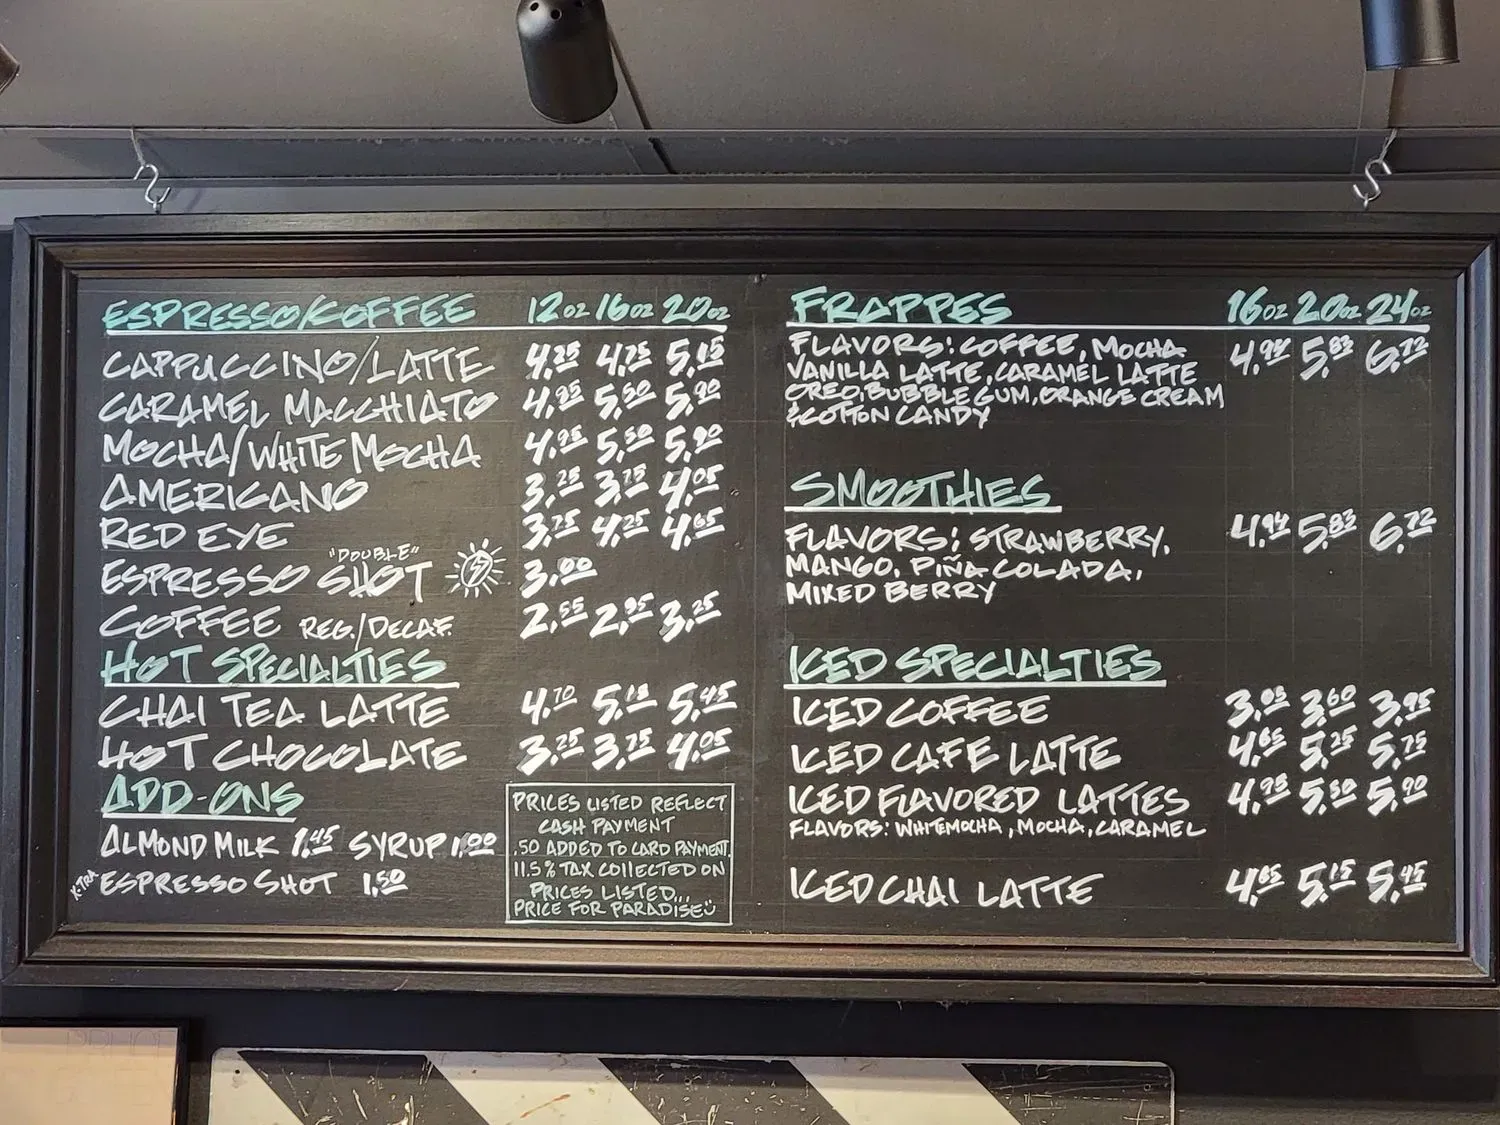 ESPRESSO/COFFEE 12oz 16oz 20oz
CAPPUCCINO/LATTE 4.25 4.75 5.15
CARAMEL MACCHIATO 4.95 5.50 5.90
MOCHA/WHITE MOCHA 4.95 5.50 5.90
AMERICANO 3.25 3.75 4.05
RED EYE 3.75 4.25 4.65
"DOUBLE"
ESPRESSO SHOT 3.00
COFFEE REG./DECAF. 2.55 2.95 3.25
HOT SPECIALTIES
CHAI TEA LATTE 4.70 5.15 5.45
HOT CHOCOLATE 3.25 3.75 4.05
ADD-ONS
ALMOND MILK 1.45 SYRUP 1.00
X-TRA ESPRESSO SHOT 1.50
PRICES LISTED REFLECT
CASH PAYMENT
.50 ADDED TO CARD PAYMENT.
11.5% TAX COLLECTED ON
PRICES LISTED...
PRICE FOR PARADISE
FRAPPES 16oz 20oz 24oz
FLAVORS: COFFEE, MOCHA 4.94 5.83 6.72
VANILLA LATTE, CARAMEL LATTE
OREO, BUBBLE GUM, ORANGE CREAM
& COTTON CANDY
SMOOTHIES
FLAVORS: STRAWBERRY, 4.94 5.83 6.72
MANGO, PIÑA COLADA,
MIXED BERRY
ICED SPECIALTIES
ICED COFFEE 3.05 3.60 3.95
ICED CAFE LATTE 4.65 5.25 5.75
ICED FLAVORED LATTES 4.95 5.50 5.90
FLAVORS: WHITEMOCHA, MOCHA, CARAMEL
ICED CHAI LATTE 4.65 5.15 5.45